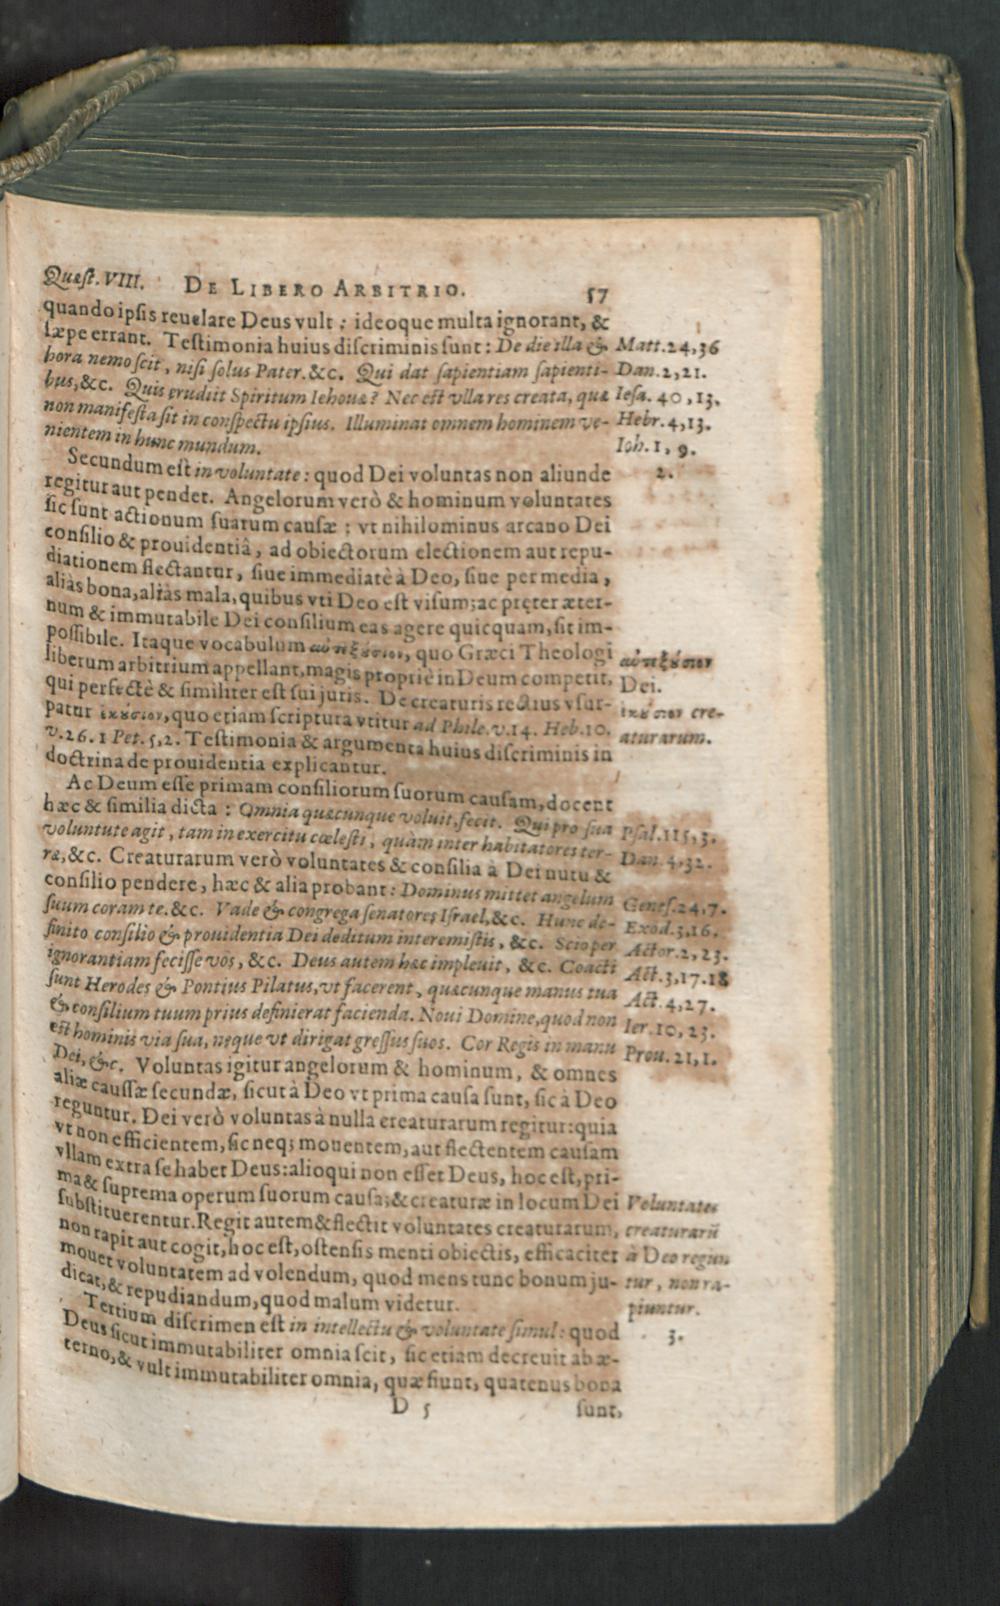 Quæst. VIII. DE LIBERO ARBITRIO. 57
quando ipsis reuelare Deus vult : ideoque multa ignorant, &
sæpe errant. Testimonia huius discriminis sunt: De die illa & Matt.24,36
hora nemo scit, nisi solus Pater.&c. Qui dat sapientiam sapienti- Dan.2,21.
bus,&c. Quis erudiit Spiritum Iehouæ? Nec est vlla res creata, quæ Iesa. 40,13.
non manifesta sit in conspectu ipsius. Illuminat omnem hominem ve- Hebr.4,13.
nientem in hunc mundum. Ioh.1,9.
Secundum est in voluntate: quod Dei voluntas non aliunde 2.
regitur aut pendet. Angelorum verò & hominum voluntates
sic sunt actionum suarum causæ : vt nihilominus arcano Dei
consilio & prouidentiâ, ad obiectorum electionem aut repu-
diationem flectantur, siue immediatè à Deo, siue per media,
aliàs bona, aliàs mala, quibus vti Deo est visum; ac pręter æter-
num & immutabile Dei consilium eas agere quicquam, sit im-
possibile. Itaque vocabulum αὐτεξȣ́σιον, quo Græci Theologi αὐτεξȣ́σιον
liberum arbitrium appellant, magis propriè in Deum competit, Dei.
qui perfectè & similiter est sui juris. De creaturis rectius vsur- ἑκȣ́σιον cre-
patur ἑκȣ́σιον, quo etiam scriptura vtitur ad Phile.v.14. Heb.10. aturarum.
v.26. 1 Pet. 5,2. Testimonia & argumenta huius discriminis in
doctrina de prouidentia explicantur.
Ac Deum esse primam consiliorum suorum causam, docent
hæc & similia dicta : Omnia quæcunque voluit, fecit. Qui pro sua Psal.115,3.
voluntute agit, tam in exercitu cœlesti, quàm inter habitatores ter- Dan.4,32.
ræ,&c. Creaturarum verò voluntates & consilia à Dei nutu &
consilio pendere, hæc & alia probant: Dominus mittet angelum Genes.24.7.
suum coram te.&c. Vade & congrega senatores Israel,&c. Hunc de- Exod.3,16.
finito consilio & prouidentia Dei deditum interemistis, &c. Scio per Actor.2,23.
ignorantiam fecisse vos, &c. Deus autem hæc impleuit, &c. Coacti Act.3,17.18
sunt Herodes & Pontius Pilatus, vt facerent, quæcunque manus tua Act.4,27.
& consilium tuum prius definierat facienda. Noui Domine, quod non Ier.10,23.
est hominis via sua, neque vt dirigat gressus suos. Cor Regis in manu Prou.21,1.
Dei,&c. Voluntas igitur angelorum & hominum, & omnes
aliæ caussæ secundæ, sicut à Deo vt prima causa sunt, sic à Deo
reguntur. Dei verò voluntas à nulla creaturarum regitur: quia
vt non efficientem, sic neq; mouentem, aut flectentem causam
vllam extra se habet Deus: alioqui non esset Deus, hoc est, pri-
ma & suprema operum suorum causa; & creaturæ in locum Dei Voluntates
substituerentur. Regit autem & flectit voluntates creaturarum, creaturarū
non rapit aut cogit, hoc est, ostensis menti obiectis, efficaciter à Deo regun
mouet voluntatem ad volendum, quod mens tunc bonum ju- tur, non ra-
dicat, & repudiandum, quod malum videtur. piuntur.
Tertium discrimen est in intellectu & voluntate simul: quod 3.
Deus sicut immutabiliter omnia scit, sic etiam decreuit ab æ-
terno, & vult immutabiliter omnia, quæ fiunt, quatenus bona
D 5 sunt,